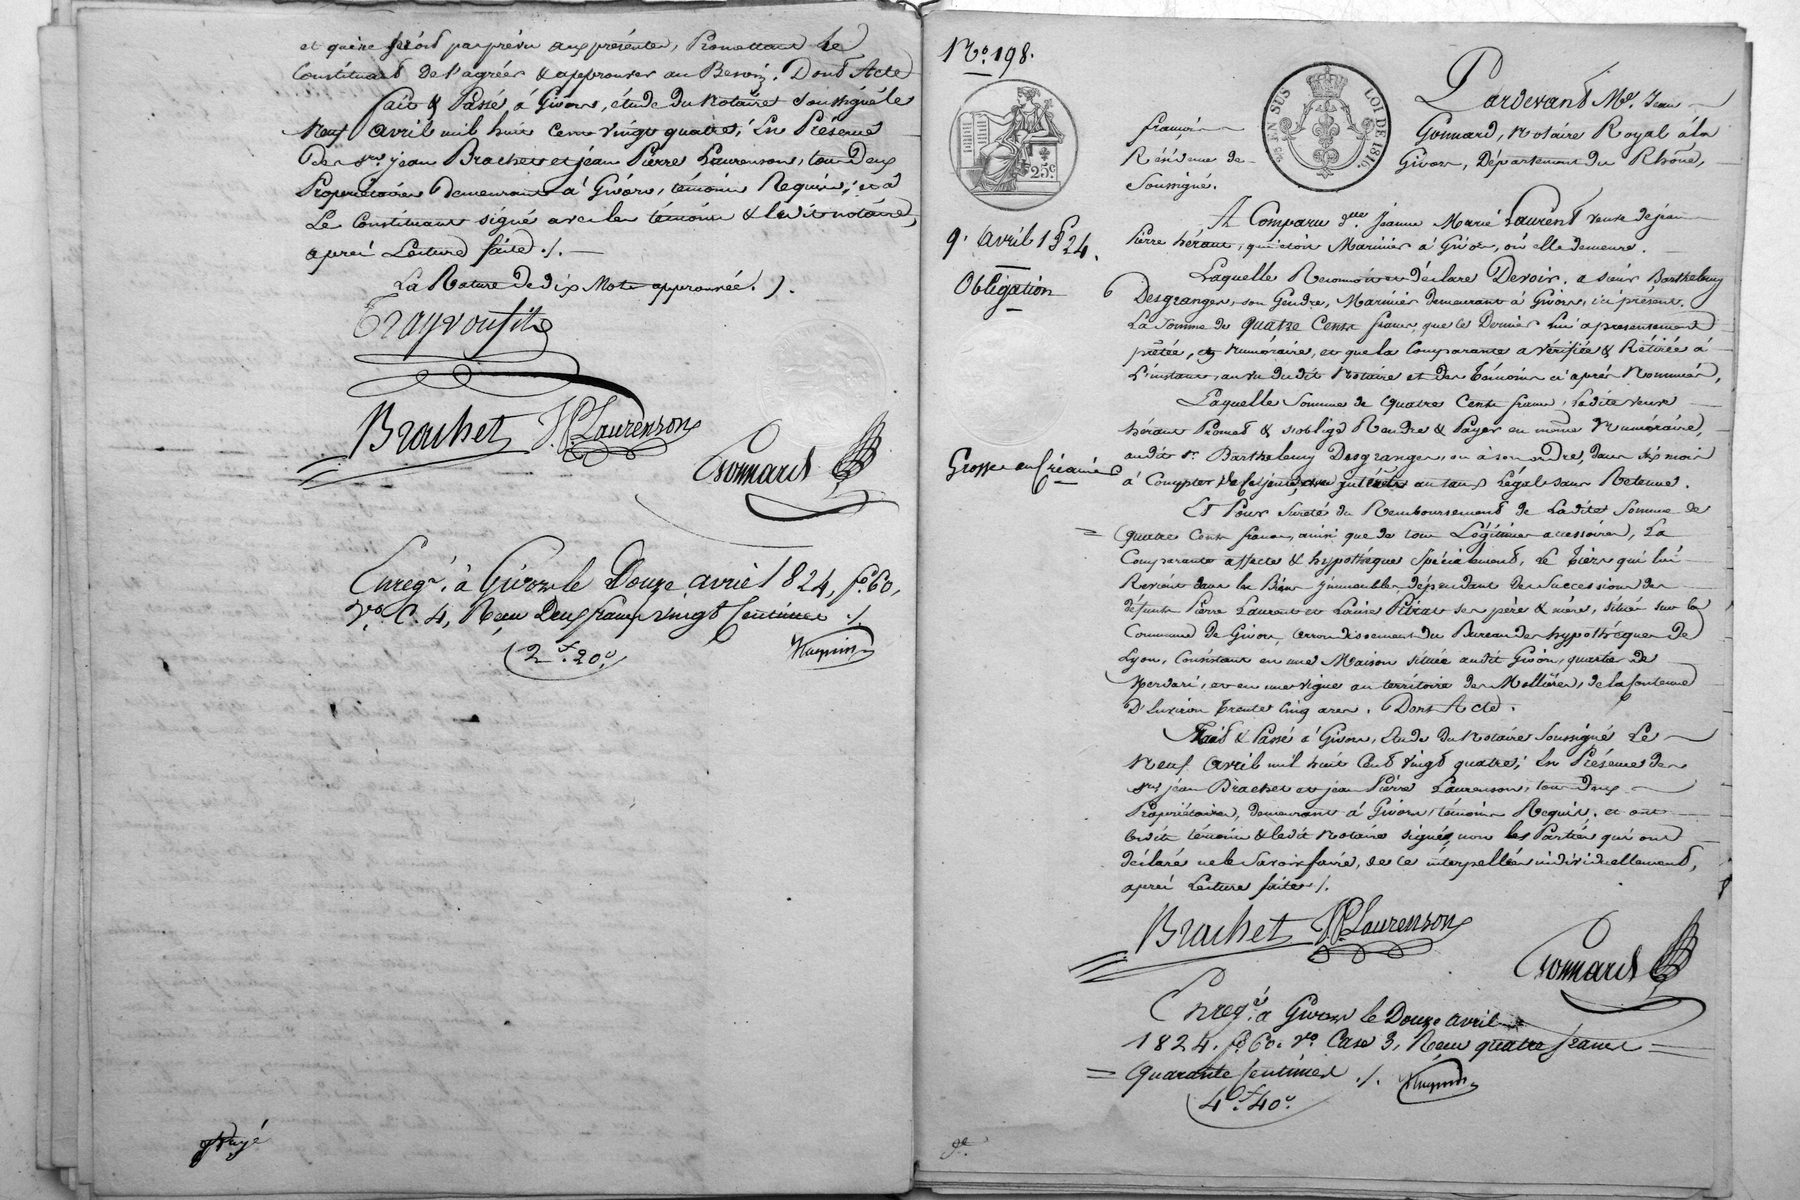 et qu'il ne seroit pas prévu aux présentes, Promettant le
Constituant de l'agréer & approuver au Besoin. Dont Acte
fait & Passé à Givors, étude du Notaire soussigné le
Neuf avril mil huit cent vingt quatre, En Présence
De srs. jean Brachet et jean Pierre Laurenson, tous Deux
Propriétaires Demeurant à Givors, témoins Requis; et a
Le Constituant signé avec les témoins & ledit notaire,
après Lecture faite ./.
La Rature De dix Mots approuvée. /.
Brachet J.P. Laurenson
Gonnard
Enregé. à Givors le Douze avril 1824, fo. 60,
Vo. C. 4, Reçu Deux francs vingt Centimes ./.
2f. 20c.
No. 198.
25c.
EN SUS
LOI DE 1816.
9. avril 1824.
Obligation
Grosse au Créancier
Pardevant Me. Jean
françois Gonnard, Notaire Royal à la
Résidence de Givors, Département du Rhône,
Soussigné.
A Comparu De. Jeanne Marie Laurent veuve de jean
Pierre héraut, qui étoit Marinier à Givors, où elle demeure.
Laquelle Reconnoit et déclare Devoir, a sieur Barthelemy
Desgranges, son Gendre, Marinier demeurant à Givors, ici présent,
La Somme de quatre Cents francs que ce Dernier lui a presentement
prêtée, en numéraire, et que la Comparante a vérifiée & Retirée à
L'instant, au vu dudit Notaire et des témoins ci après Nommés,
Laquelle Somme de quatre Cents francs, ladite veuve
héraut Promet & s'oblige Rendre & Payer en même Numéraire,
audit sr. Barthelemy Desgranges, ou à son ordre, dans six mois
à Compter de ce jour, avec intérêts au taux Légal sans Retenue.
Et Pour Sureté du Remboursement de Ladite Somme de
quatre Cents francs, ainsi que de tous Légitimes accessoires, La
Comparante affecte & hypothèque spécialement, le tiers qui lui
Revient dans les Biens immeubles dépendant des Successions de
défunts Pierre Laurent et Louise Pitiot ses père & mère, situés sur la
Commune de Givors, arrondissement du Bureau des hypothèques de
Lyon, Consistant en une Maison située audit Givors, quartier de
et en une vigne au territoire des Mollières, de la Contenue
D'Environ trente Cinq ares. Dont Acte.
Fait & Passé à Givors, étude du Notaire Soussigné Le
Neuf avril mil huit Cent vingt quatre; En Présence des
srs jean Brachet et jean Pierre Laurenson, tous deux
Propriétaires, demeurant à Givors, témoins Requis, et ont
lesdits témoins & ledit Notaire signé, non les Parties qui ont
déclaré ne le Savoir faire, de ce interpellées individuellement,
après Lecture faite ./.
Brachet J.P. Laurenson
Gonnard
Enregé. à Givors le Douze avril
1824. fo. 60. Vo. Case 3, Reçu quatre francs
quarante Centimes ./.
4f. 40c.